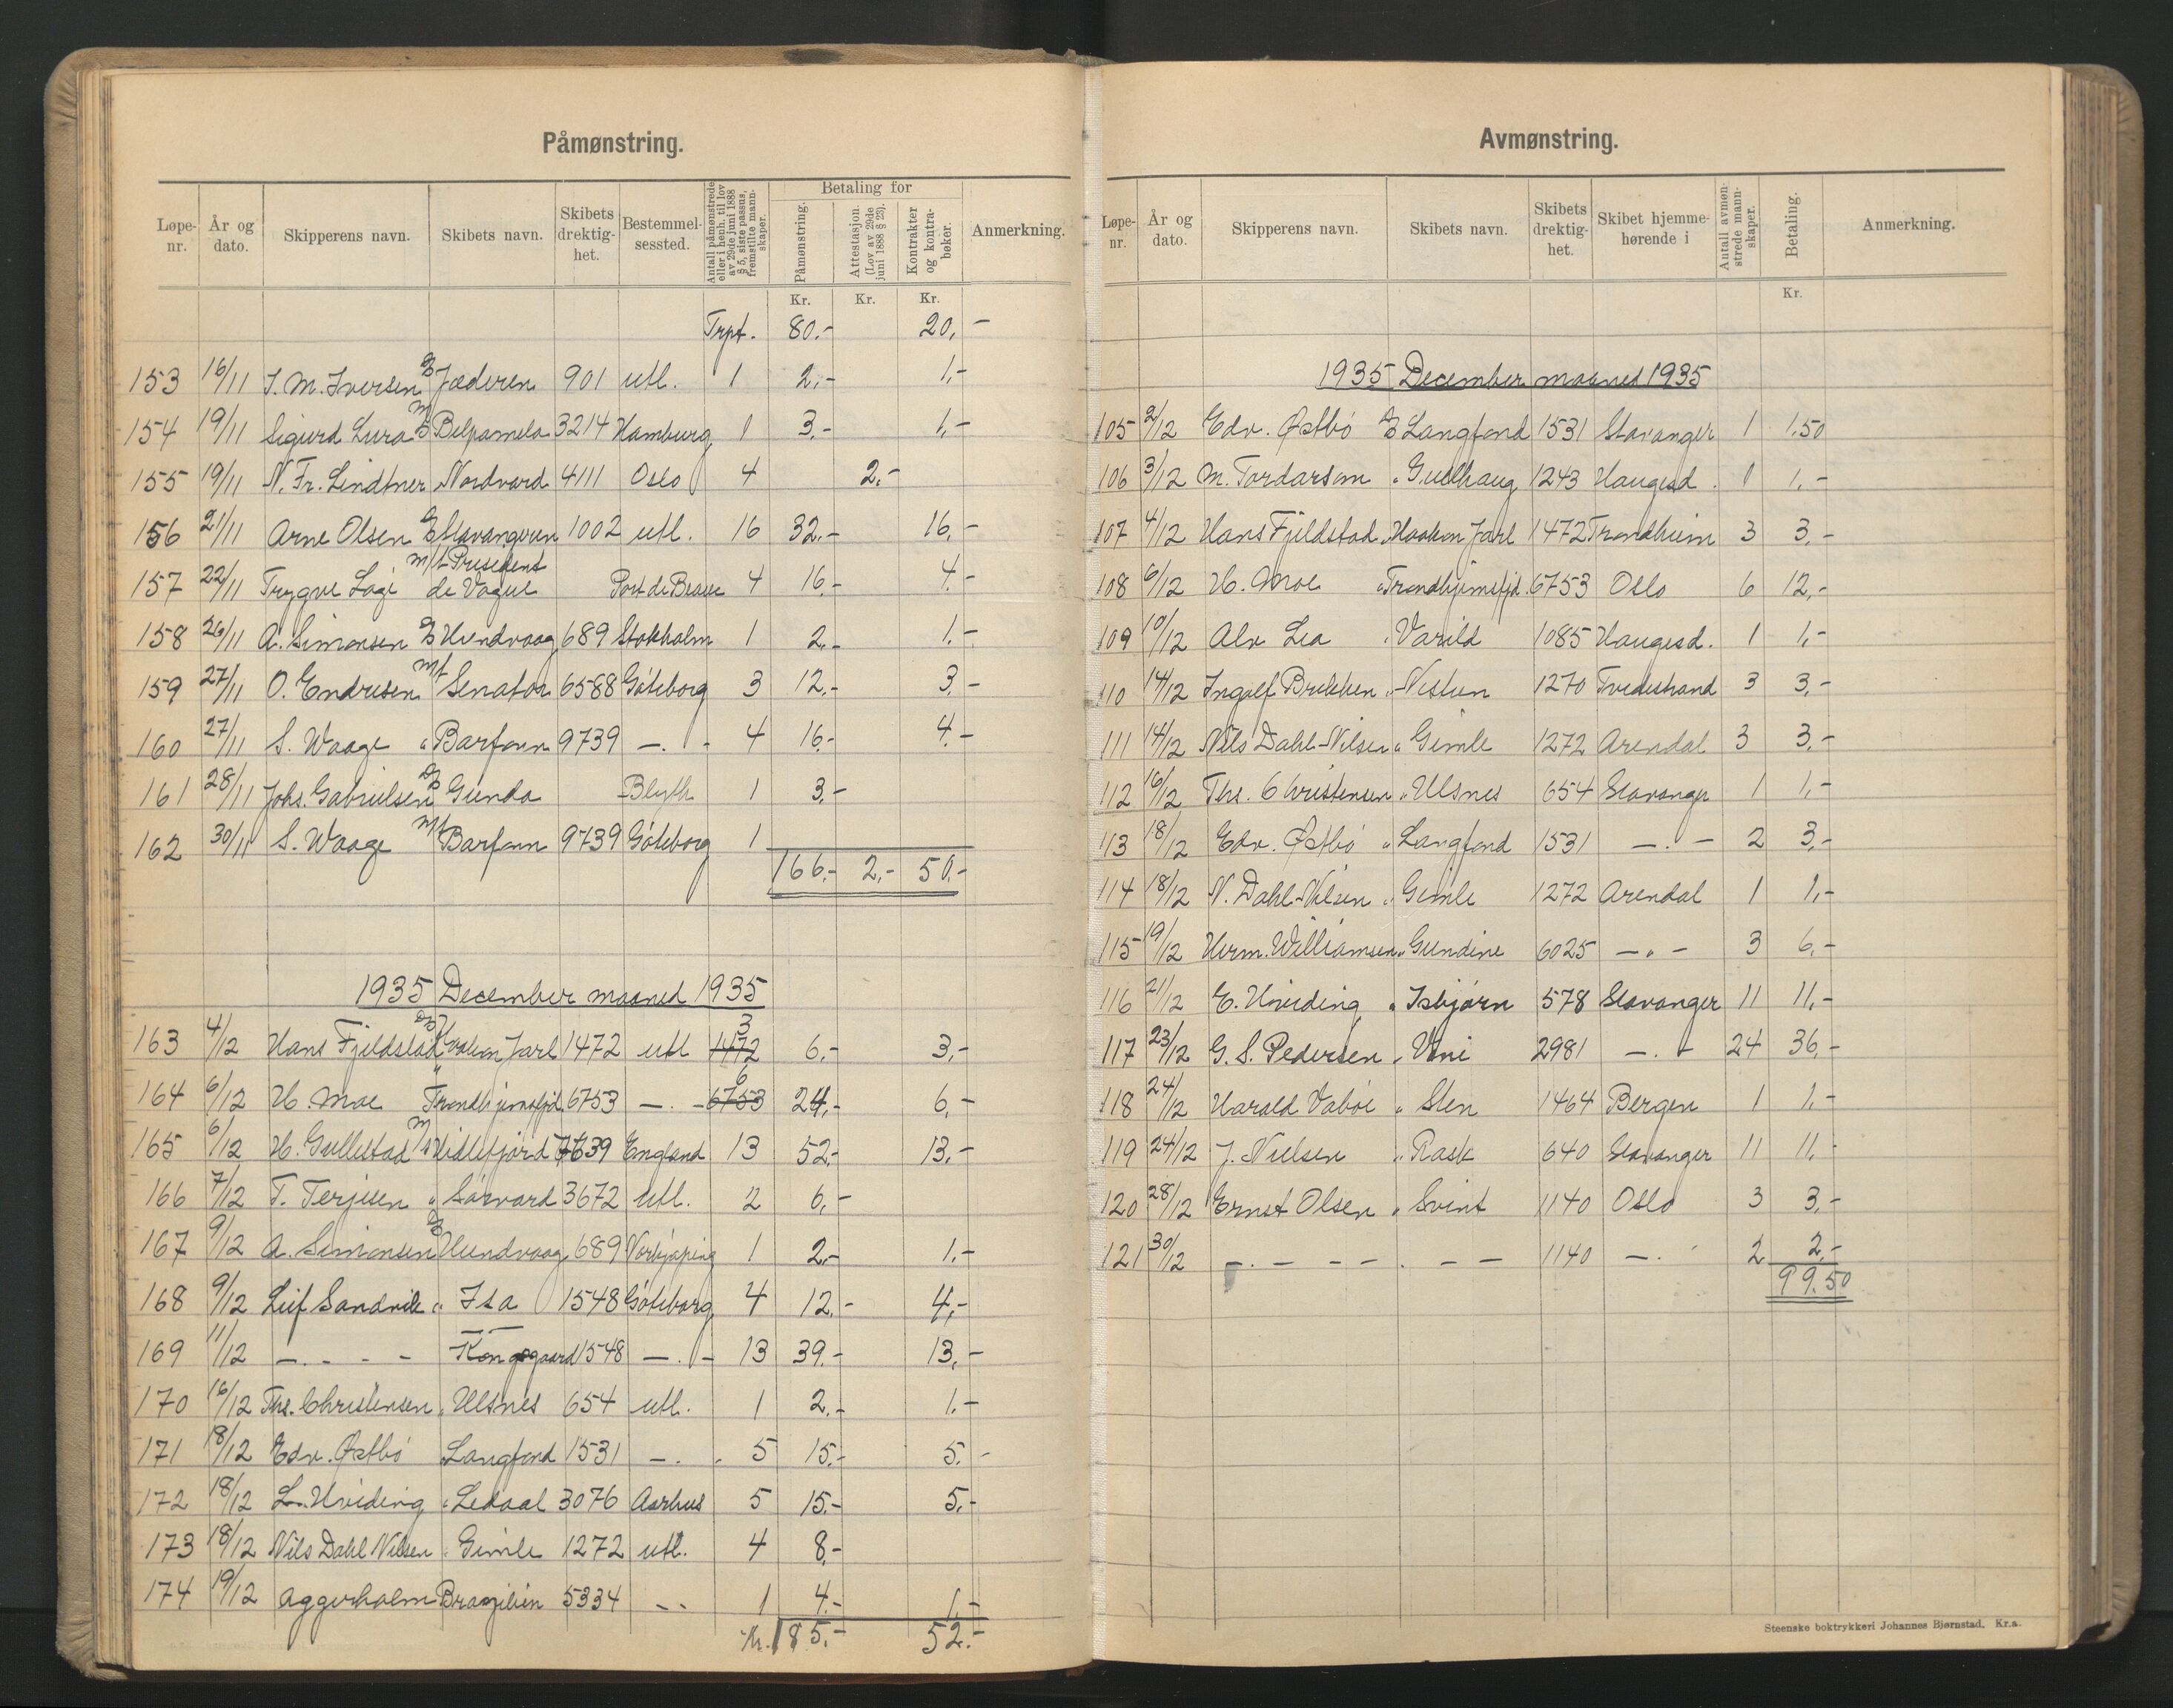 Påmønstring.
Løpe-nr. År og dato. Skipperens navn. Skibets navn. Skibets drektig-het. Bestemmel-sessted. Antall påmønstrede eller i henh. til lov av 29de juni 1888 § 5, siste passus, fremstilte mann-skaper. Betaling for Påmønstring. Attestasjon. (Lov av 29de juni 1888 § 23). Kontrakter og kontra-bøker. Anmerkning.
Kr. Kr. Kr.
Trpt. 80.- 20,-
153 16/11 I. M. Iversen D/S Jæderen 901 utl. 1 2,- 1,-
154 19/11 Sigurd Lura M/S Belpamela 3214 Hamburg 1 3,- 1,-
155 19/11 N. Fr. Lindtner Nordvard 4111 Oslo 4 2,-
156 21/11 Arne Olsen D/S Stavangeren 1002 utl. 16 32.- 16,-
157 22/11 Trygve Lagi m/t President de Vogue 4 16,- 4,-
158 26/11 A. Simonsen D/S Hundvaag 689 Stokholm 1 2,- 1,-
159 27/11 O. Endresen m/t Senator 6588 Göteborg 3 12,- 3,-
160 27/11 S. Waage " Barfonn 9739 -"- 4 16,- 4,-
161 28/11 Johs. Gabrielsen D/S Gunda Blyth 1 3,-
162 30/11 S. Waage M/t Barfonn 9739 Göteborg 1
166,- 2,- 50,-
1935 December maaned 1935
163 4/12 Hans Fjeldstad D/S Haakon Jarl 1472 utl 1472 3 6,- 3,-
164 6/12 H. Moe " Trondhjemsfjd. 6753 -"- 6753 6 24,- 6,-
165 6/12 H. Gullestad M/S Hidlefjord 7639 England 13 52,- 13,-
166 7/12 T. Terjesen " Sørvard 3672 utl. 2 6,-
167 9/12 A. Simonsen D/S Hundvaag 689 Norkjøping 1 2,- 1,-
168 9/12 Leif Sandvik " Isa 1548 Göteborg 4 12,- 4,-
169 11/12 -"- - - Kongsgaard 1548 -"- 13 39,- 13,-
170 16/12 Ths. Christensen " Ulsnes 654 utl. 1 2,- 1,-
171 18/12 Edv. Østbö Langfond 1531 -"- 5 15,- 5,-
172 18/12 L. Hviding " Ledaal 3076 Aarhus 5 15,- 5,-
173 18/12 Nils Dahl Nilsen " Gimle 1272 utl. 4 8,-
174 19/12 Aggerholm Brazilien 5334 -"- 1 4,- 1,-
Kr. 185,- 52,-
Avmønstring.
Løpe-nr. År og dato. Skipperens navn. Skibets navn. Skibets drektig-het. Skibet hjemme-hørende i Antall avmøn-strede mann-skaper. Betaling. Anmerkning.
Kr.
1935 December maaned 1935
105 2/12 Edv. Østbö D/S Langfond 1531 Stavanger 1 1.50
106 3/12 M. Tordarson " Gudhaug 1243 Haugesd. 1 1,-
107 4/12 Hans Fjeldstad " Haakon Jarl 1472 Trondheim 3 3,-
108 6/12 H. Moe " Trondhjemsfjd. 6753 Oslo 6 12,-
109 10/12 Alv Lea " Varild 1085 Haugesd. 1 1,-
110 14/12 Ingolf " Neslun 1270 Tvedestrand 3 3,-
111 14/12 Nils Dahl-Nilsen " Gimle 1272 Arendal 3 3,-
112 16/12 Ths. Christensen " Ulsnes 654 Stavanger 1 1,-
113 18/12 Edv. Østbö " Langfond 1531 -"- 2 3,-
114 18/12 N. Dahl-Nilsen " Gimle 1272 Arendal 1 1,-
115 19/12 Herm. Williamsen " Gundine 6025 -"- 3 6,-
116 21/12 E. Hviding " Isbjørn 578 Stavanger 11 11,-
117 23/12 G. S. Pedersen " Voni 2981 -"- 24 36,-
118 24/12 Harald Vaböe " Sten 1464 Bergen 1 1,-
119 24/12 J. Nielsen " Rask 640 Stavanger 11 11,-
120 28/12 Ernst Olsen " Svint 1140 Oslo 3 3,-
121 30/12 -"- - - -"- - 1140 -"- 2 2,-
99.50
Steenske boktrykkeri Johannes Bjørnstad. Kr.a.